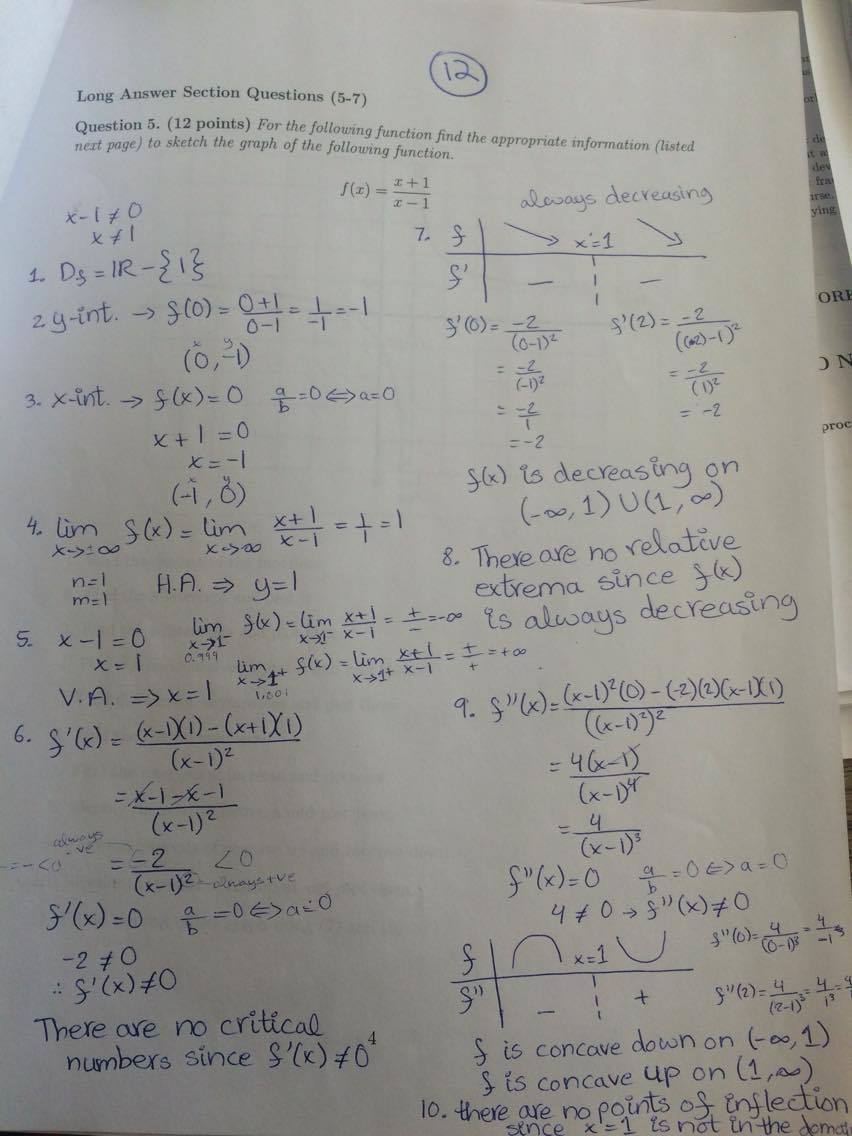 12
Long Answer Section Questions (5-7)
Question 5. (12 points) For the following function find the appropriate information (listed
next page) to sketch the graph of the following function.
f(x) = (x+1)/(x−1)
x-1≠0
x≠1
1. Df = IR - {1}
2. y-int. → f(0) = (0+1)/(0-1) = 1/-1 = -1
x y
(0, -1)
3. x-int. → f(x) = 0 a/b = 0 ⇔ a=0
x+1 = 0
x = -1
x y
(-1, 0)
4. lim x→±∞ f(x) = lim x→∞ (x+1)/(x-1) = 1/1 = 1
n=1
m=1
H.A. ⇒ y=1
5. x-1=0
x=1
lim x→1⁻ f(x) = lim x→1⁻ (x+1)/(x-1) = +/- = -∞
0.999
lim x→1⁺ f(x) = lim x→1⁺ (x+1)/(x-1) = +/+ = +∞
1.001
V.A. ⇒ x=1
6. f'(x) = ((x-1)(1) - (x+1)(1))/(x-1)²
= (x-1-x-1)/(x-1)²
always
-ve
= -2/(x-1)² <0
always +ve
f'(x)=0 a/b = 0 ⇔ a=0
-2 ≠ 0
∴ f'(x) ≠ 0
There are no critical
numbers since f'(x) ≠ 0
4
always decreasing
7. f x=1
f' - -
f'(0) = -2/(0-1)² f'(2) = -2/((2)-1)²
= -2/(-1)² = -2/(1)²
= -2/1 = -2
= -2
f(x) is decreasing on
(-∞, 1) U (1, ∞)
8. There are no relative
extrema since f(x)
is always decreasing
9. f''(x) = ((x-1)²(0) - (-2)(2)(x-1)(1))/((x-1)²)²
= 4(x-1)/(x-1)⁴
= 4/(x-1)³
f''(x)=0 a/b = 0 ⇔ a=0
4 ≠ 0 → f''(x) ≠ 0
f x=1
f'' - +
f''(0) = 4/(0-1)³ = 4/-1³
f''(2) = 4/(2-1)³ = 4/1³ =
f is concave down on (-∞, 1)
f is concave up on (1, ∞)
10. there are no points of inflection
since x=1 is not in the domain